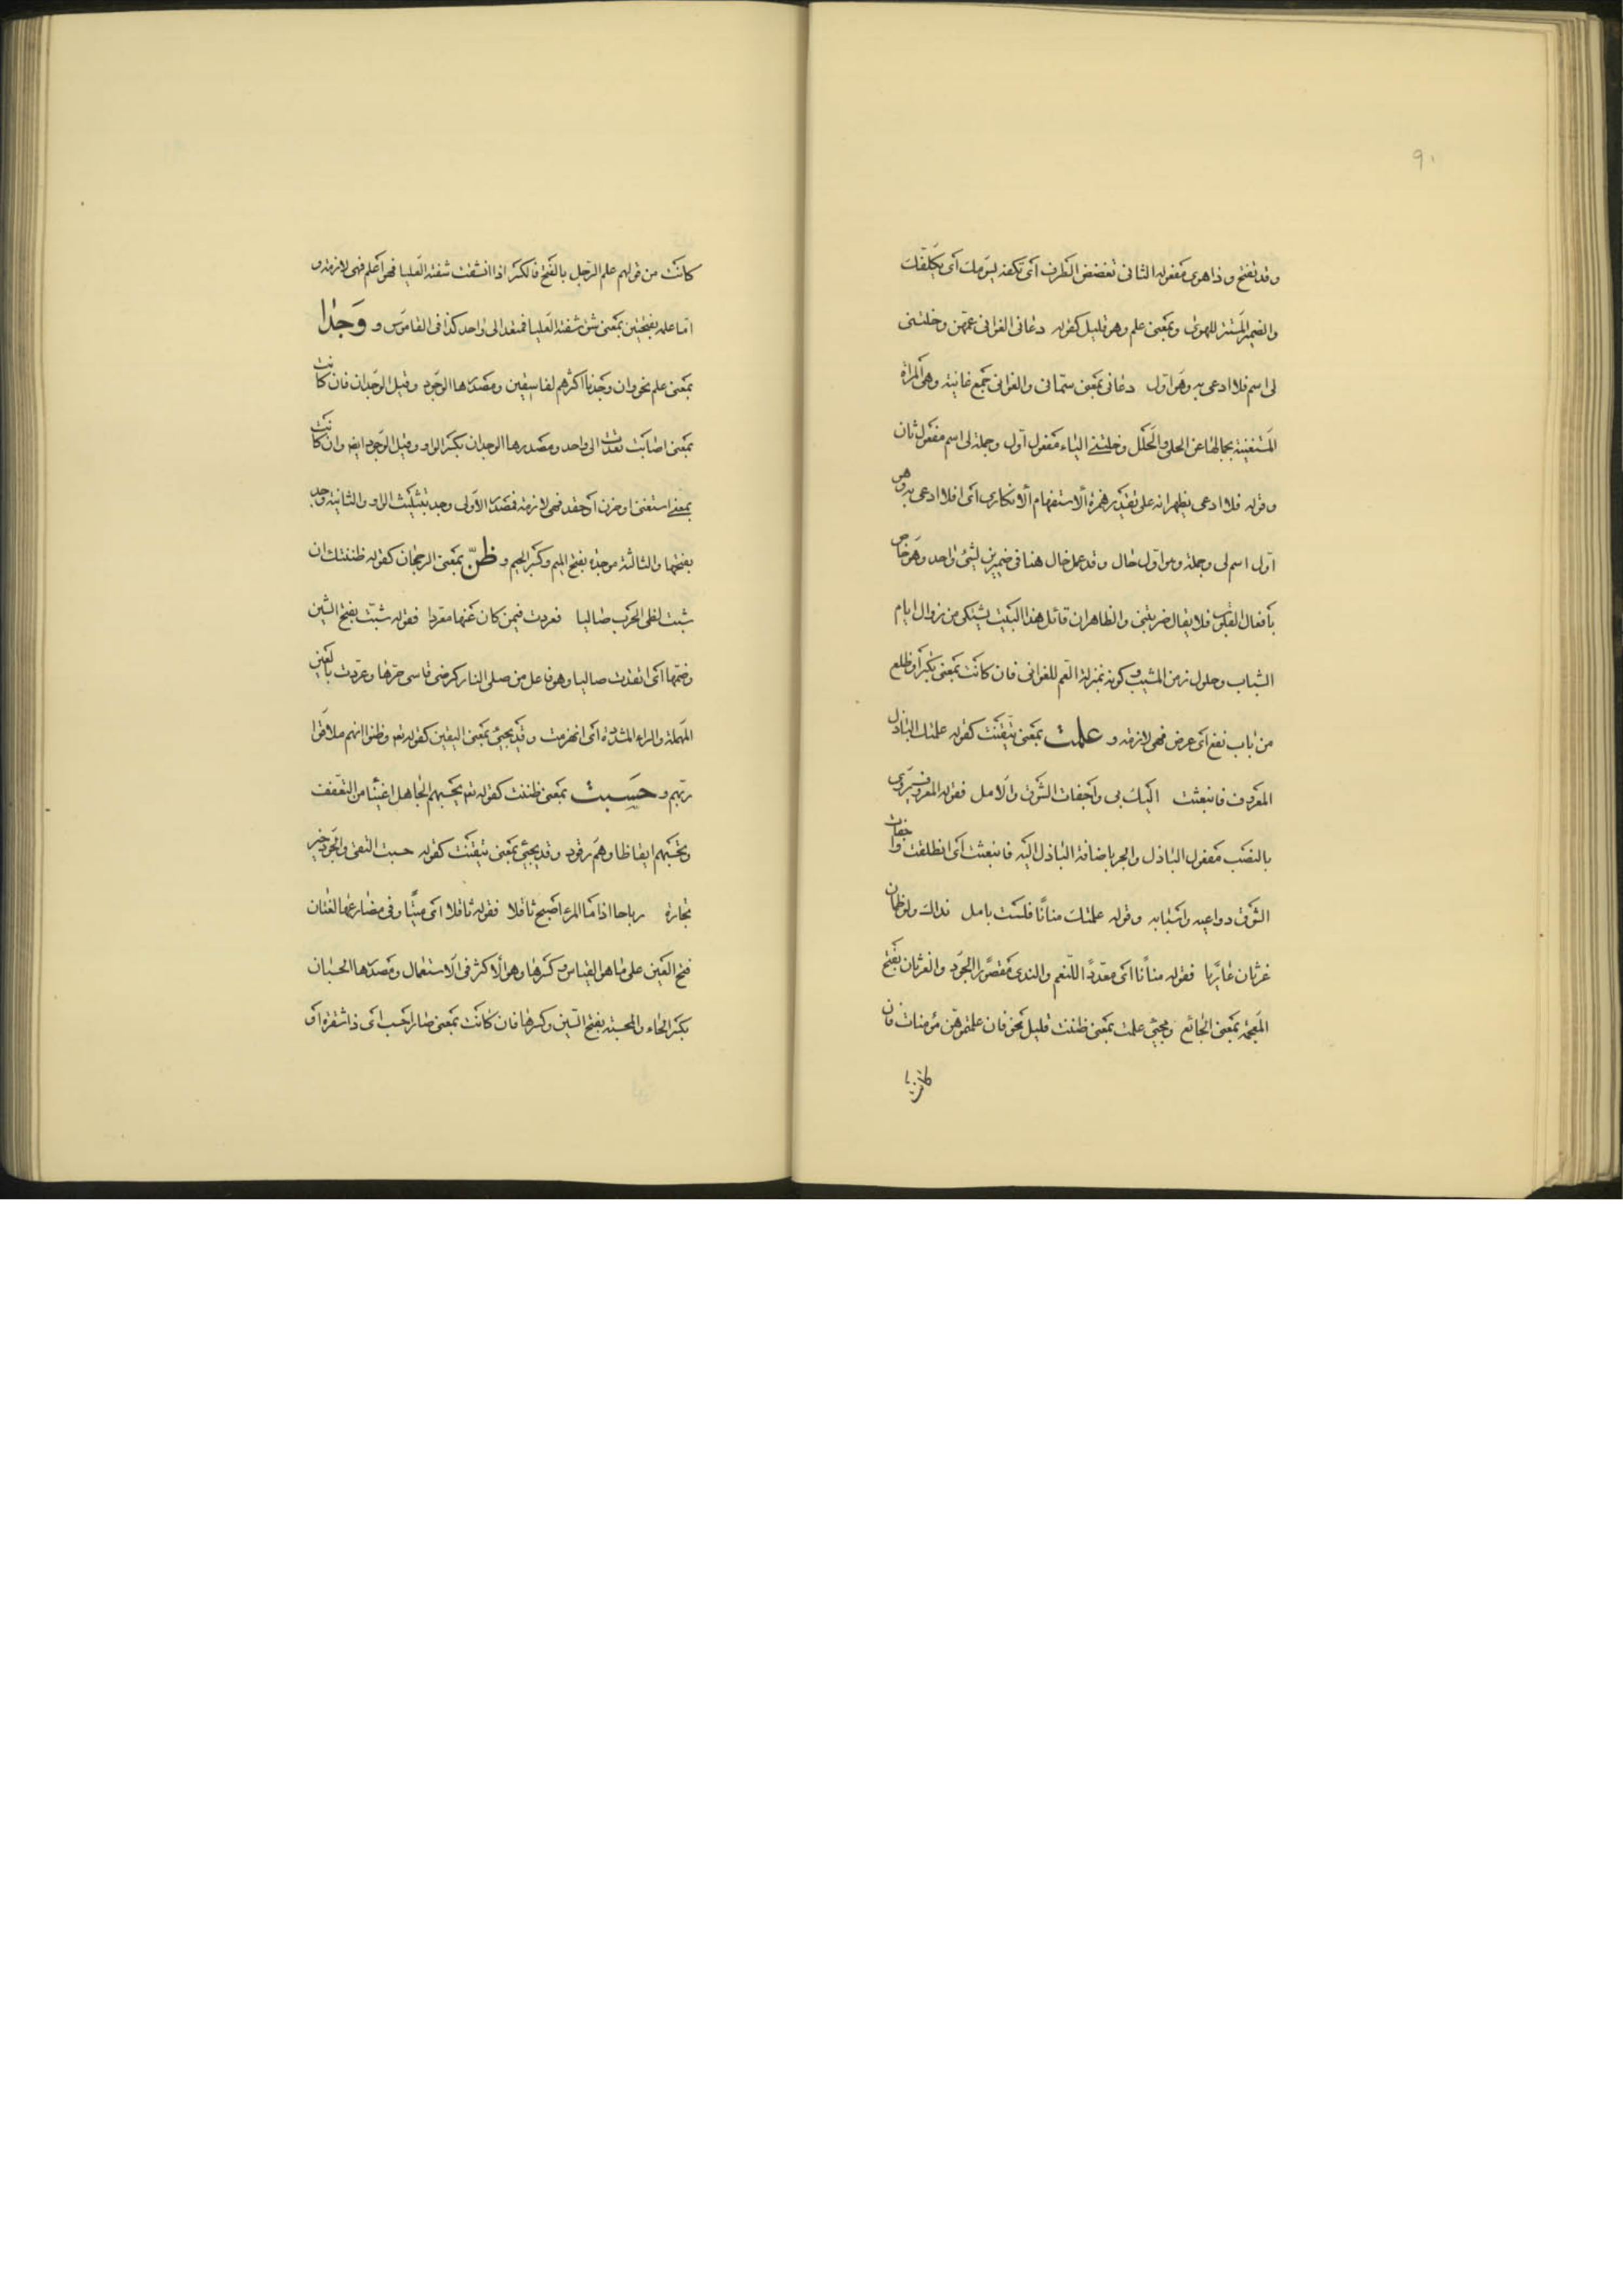 ٩٠
وقد تفتح وذا هوى مفعوله الثانى تغضض الطرف اى تكفه يسومك اى يكلفك
والضمير المستتر للهوى وبمعنى علم وهو قليل كقوله دعانى الغوانى عمهن وخلتنى
لى اسم فلا ادعى به وهو اول دعانى بمعنى سمانى والغوانى جمع غانية وهى المراة
المستغنية بجمالها عن الحلى والحلل وخلتنى الياء مفعول اول وجملة لى اسم مفعول ثان
وقوله فلا ادعى يظهر انه على تقدير همزة الاستفهام الانكارى اى افلا ادعى به وهو
اول اسم لى وجملة وهو اول حال وقد عمل خال هنا فى ضميرين لشئ واحد وهو خاص
بافعال القلوب فلا يقال ضربتنى والظاهر ان قائل هذا البيت يشتكى من زوال ايام
الشباب وحلول زمن المشيب وكونه بمنزلة العم للغوانى فان كانت بمعنى تكبر او ظلع
من باب نفع اى عرض فهى لازمة و علمت بمعنى تيقنت كقوله علمتك الباذل
المعروف فانبعثت اليك بى واجفات الشوق والامل فقوله المعروف يروى
بالنصب مفعول الباذل والجر باضافة الباذل اليه فانبعثت اى انطلقت واجفات
الشوق دواعيه واسبابه وقوله علمتك منانا فلست بامل نداك ولو ظمآن
غرثان عاريا فقوله منانا اى معددا للنعم والندى مقصورا الجود والغرثان بفتح
المعجمة بمعنى الجائع ويجئ علمت بمعنى ظننت قليل نحو فان علمتموهن مؤمنات فان
كانت
كانت من قولهم علم الرجل بالفتح فالكسر اذا انشقت شفته العليا فهو اعلم فهى لازمة و
اما علمه بفتحتين بمعنى شق شفته العليا فمتعد الى واحد كذا فى القاموس و وَجَدَا
بمعنى علم نحو وان وجدنا اكثرهم لفاسقين ومصدرها الوجود وقيل الوجدان فان كانت
بمعنى اصابت تعدت الى واحد ومصدرها الوجدان بكسر الواو وقيل الوجود ايضا وان كانت
بمعنى استغنى او حزن او حقد فهى لازمة فمصدر الاولى وجد بتثليث الواو والثانية وجد
بفتحها والثالثة موجدة بفتح الميم وكسر الجيم و ظنّ بمعنى الرجحان كقوله ظننتك ان
شبت لظى الحرب صاليا فعردت فيمن كان عنها معردا فقوله شبت بفتح الشين
وضمها اى اتقدت صاليا وهو فاعل من صلى النار كرضى قاسى حرها وعردت بالعين
المهملة والراء المشددة اى انهزمت وقد يجئ بمعنى اليقين كقوله تع وظنوا انهم ملاقوا
ربهم و حَسِبت بمعنى ظننت كقوله تع يحسبهم الجاهل اغنياء من التعفف
وتحسبهم ايقاظا وهم رقود وقد يجئ بمعنى تيقنت كقوله حسبت التقى والجود خير
تجارة رباحا اذا ما المرء اصبح ثاقلا فقوله ثاقلا اى ميتا وفى مضارعها لغتان
فتح العين على ما هو القياس وكسرها وهو الاكثر فى الاستعمال ومصدرها الحسبان
بكسر الحاء والمحسبة بفتح السين وكسرها فان كانت بمعنى صار احسب اى ذا شقرة او